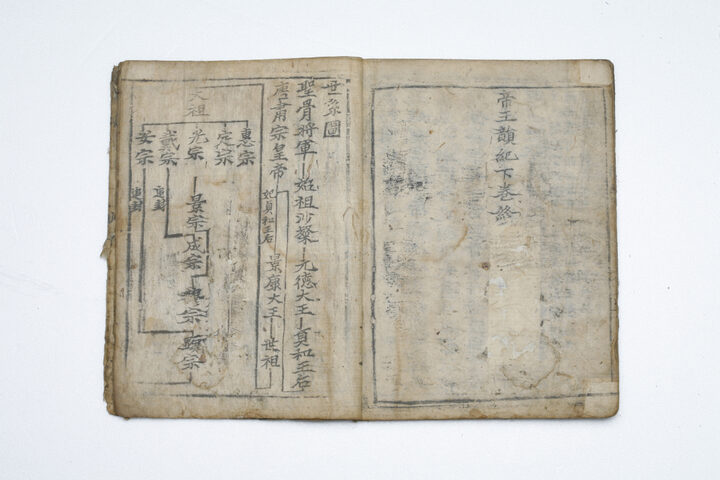 帝王韻紀下卷終
世系圖
聖骨將軍 始祖沙粲 元德大王 貞和王后
唐肅宗皇帝
妃貞和王后
景康大王 世祖
太祖
惠宗
定宗
光宗
戴宗
安宗
追封
追封
景宗
成宗
穆宗
顯宗